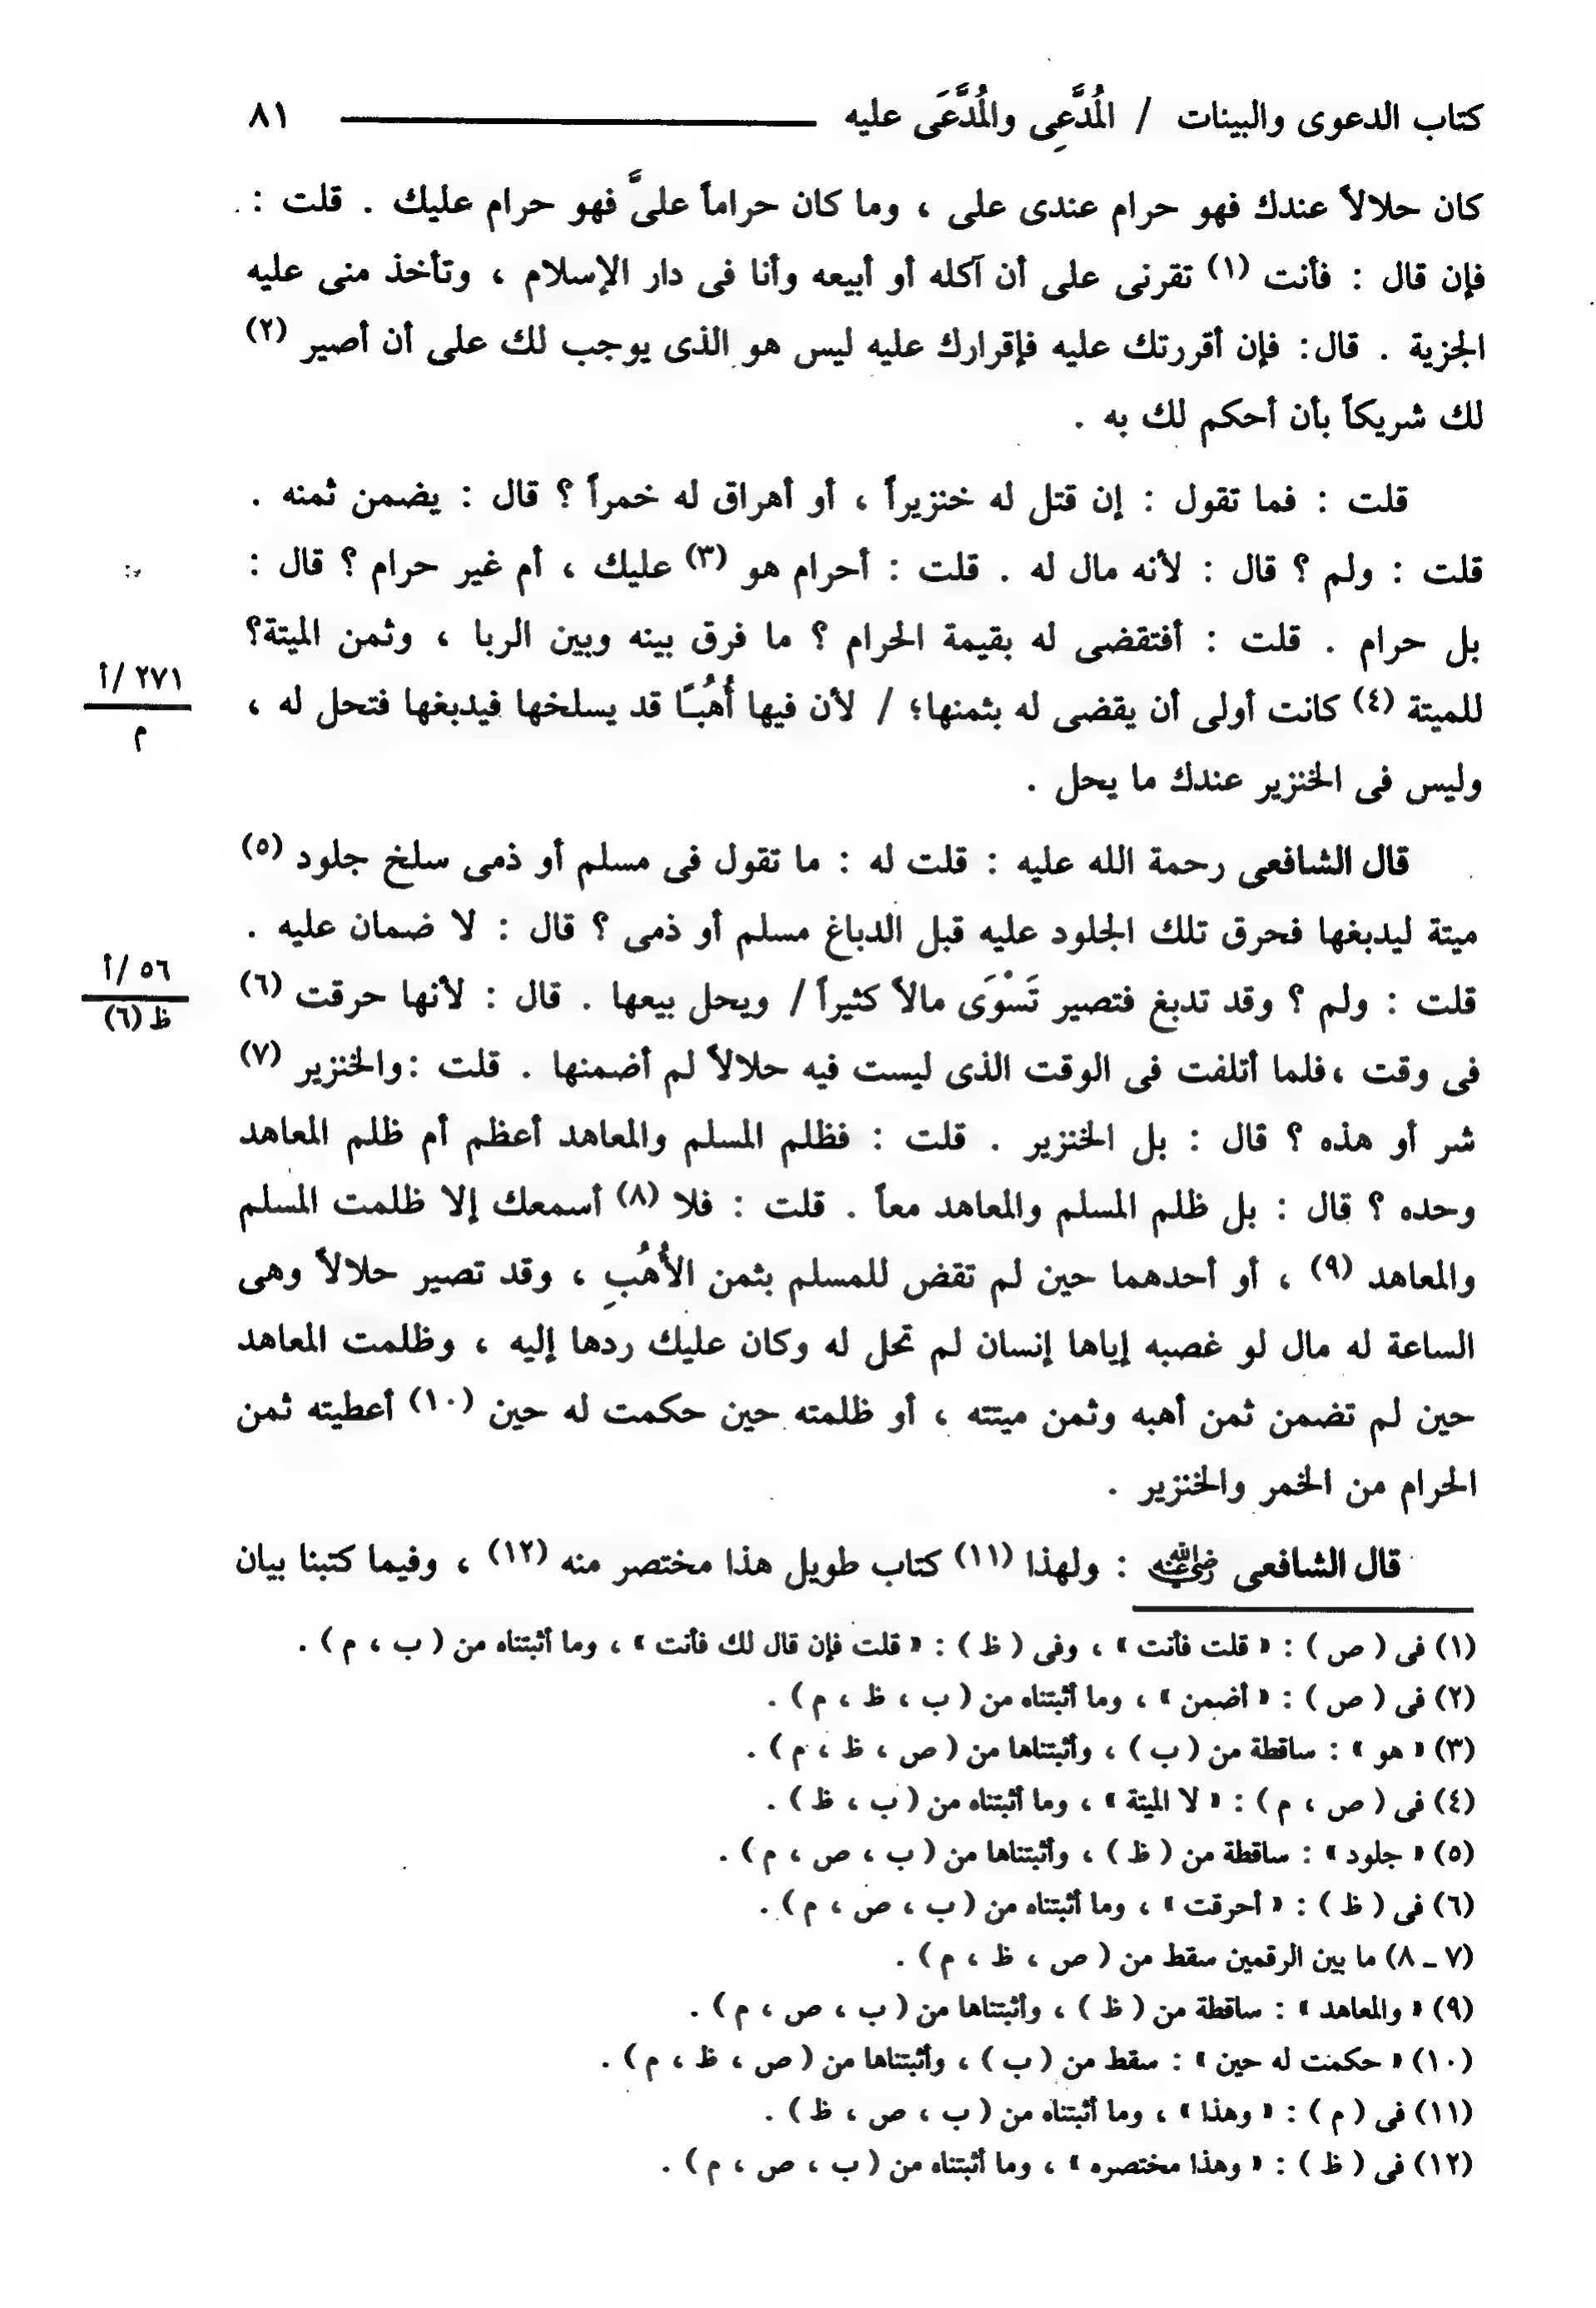 كتاب الدعوى والبينات / المُدَّعِى والمُدَّعَى عليه ٨١
كان حلالاً عندك فهو حرام عندى على ، وما كان حراماً علىَّ فهو حرام عليك . قلت :
فإن قال : فأنت (١) تقرنى على أن آكله أو أبيعه وأنا فى دار الإسلام ، وتأخذ منى عليه
الجزية . قال: فإن أقررتك عليه فإقرارك عليه ليس هو الذى يوجب لك على أن أصير (٢)
لك شريكاً بأن أحكم لك به .
قلت : فما تقول : إن قتل له خنزيراً ، أو أهراق له خمراً ؟ قال : يضمن ثمنه .
قلت : ولم ؟ قال : لأنه مال له . قلت : أحرام هو (٣) عليك ، أم غير حرام ؟ قال :
بل حرام . قلت : أفتقضى له بقيمة الحرام ؟ ما فرق بينه وبين الربا ، وثمن الميتة؟
للميتة (٤) كانت أولى أن يقضى له بثمنها؛ / لأن فيها أُهُبًا قد يسلخها فيدبغها فتحل له ،
٢٧١ /أ
م
وليس فى الخنزير عندك ما يحل .
قال الشافعى رحمة الله عليه : قلت له : ما تقول فى مسلم أو ذمى سلخ جلود (٥)
ميتة ليدبغها فحرق تلك الجلود عليه قبل الدباغ مسلم أو ذمى ؟ قال : لا ضمان عليه .
قلت : ولم ؟ وقد تدبغ فتصير تَسْوَى مالاً كثيراً / ويحل بيعها . قال : لأنها حرقت (٦)
٥٦ /أ
ظ (٦)
فى وقت ،فلما أتلفت فى الوقت الذى ليست فيه حلالاً لم أضمنها . قلت :والخنزير (٧)
شر أو هذه ؟ قال : بل الخنزير . قلت : فظلم المسلم والمعاهد أعظم أم ظلم المعاهد
وحده ؟ قال : بل ظلم المسلم والمعاهد معاً . قلت : فلا (٨) أسمعك إلا ظلمت المسلم
والمعاهد (٩) ، أو أحدهما حين لم تقض للمسلم بثمن الأُهُبِ ، وقد تصير حلالاً وهى
الساعة له مال لو غصبه إياها إنسان لم تحل له وكان عليك ردها إليه ، وظلمت المعاهد
حين لم تضمن ثمن أهبه وثمن ميتته ، أو ظلمته حين حكمت له حين (١٠) أعطيته ثمن
الحرام من الخمر والخنزير .
قال الشافعى رضي الله عنه : ولهذا (١١) كتاب طويل هذا مختصر منه (١٢) ، وفيما كتبنا بيان
(١) فى ( ص ) : « قلت فأنت » ، وفى ( ظ ) : « قلت فإن قال لك فأنت » ، وما أثبتناه من ( ب ، م ) .
(٢) فى ( ص ) : « أضمن » ، وما أثبتناه من ( ب ، ظ ، م ) .
(٣) « هو » : ساقطة من ( ب ) ، وأثبتناها من ( ص ، ظ ، م ) .
(٤) فى ( ص ، م ) : « لا الميتة » ، وما أثبتناه من ( ب ، ظ ) .
(٥) « جلود » : ساقطة من ( ظ ) ، وأثبتناها من ( ب ، ص ، م ) .
(٦) فى ( ظ ) : « أحرقت » ، وما أثبتناه من ( ب ، ص ، م ) .
(٧ ـ ٨) ما بين الرقمين سقط من ( ص ، ظ ، م ) .
(٩) « والمعاهد » : ساقطة من ( ظ ) ، وأثبتناها من ( ب ، ص ، م ) .
(١٠) « حكمت له حين » : سقط من ( ب ) ، وأثبتناها من ( ص ، ظ ، م ) .
(١١) فى ( م ) : « وهذا » ، وما أثبتناه من ( ب ، ص ، ظ ) .
(١٢) فى ( ظ ) : « وهذا مختصره » ، وما أثبتناه من ( ب ، ص ، م ) .